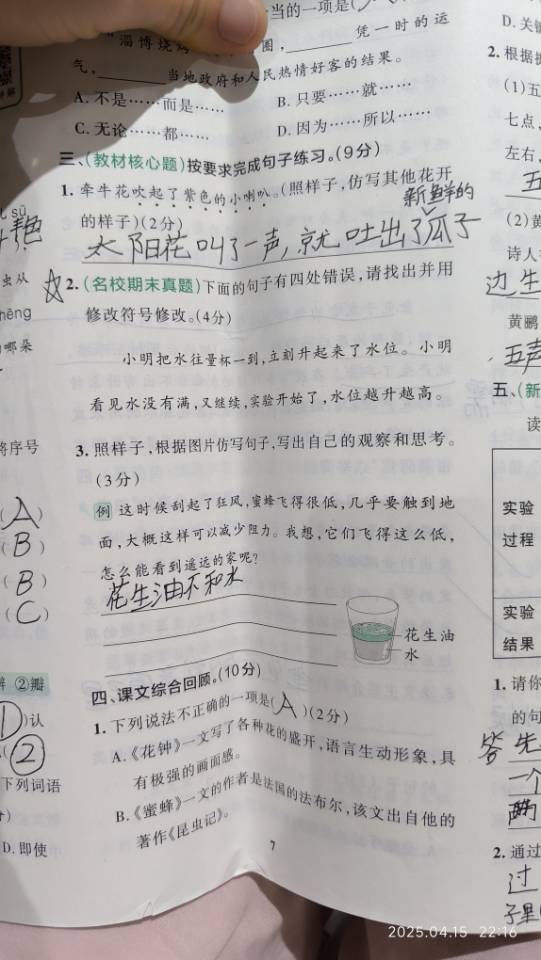 当的一项是(
淄博烧烤
图,________凭一时的运
气,________当地政府和人民热情好客的结果。
A. 不是……而是……
B. 只要……就……
C. 无论……都……
D. 因为……所以……
三、(教材核心题)按要求完成句子练习。(9分)
1. 牵牛花吹起了紫色的小喇叭。(照样子,仿写其他花开
的样子)(2分)
新鲜的
太阳花叫了一声,就吐出了瓜子
2.(名校期末真题)下面的句子有四处错误,请找出并用
修改符号修改。(4分)
小明把水往量杯一到,立刻升起来了水位。小明
看见水没有满,又继续,实验开始了,水位越升越高。
3. 照样子,根据图片仿写句子,写出自己的观察和思考。
(3分)
例 这时候刮起了狂风,蜜蜂飞得很低,几乎要触到地
面,大概这样可以减少阻力。我想,它们飞得这么低,
怎么能看到遥远的家呢?
花生油不和水
花生油
水
四、课文综合回顾。(10分)
1. 下列说法不正确的一项是(A)(2分)
A.《花钟》一文写了各种花的盛开,语言生动形象,具
有极强的画面感。
B.《蜜蜂》一文的作者是法国的法布尔,该文出自他的
著作《昆虫记》。
7
sū
虫从
hēng
哪朵
将序号
(A)
(B)
(B)
(C)
②瓣
①)认
②
下列词语
D. 即使
D. 关
2. 根据
(1)五
七点,
左右,
五
(2)黄
诗人
边生
黄鹂
五声
五、(新
读
实验
过程
实验
结果
1. 请你
的句
答先
一个
两
2. 通过
过
子里
2025.04.15 22:16